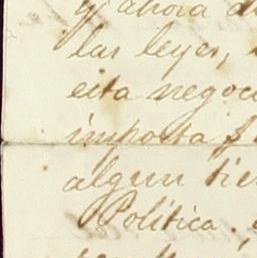 y ahora d
las leyes,
esta negoc
importa f
algun tie
Politica.